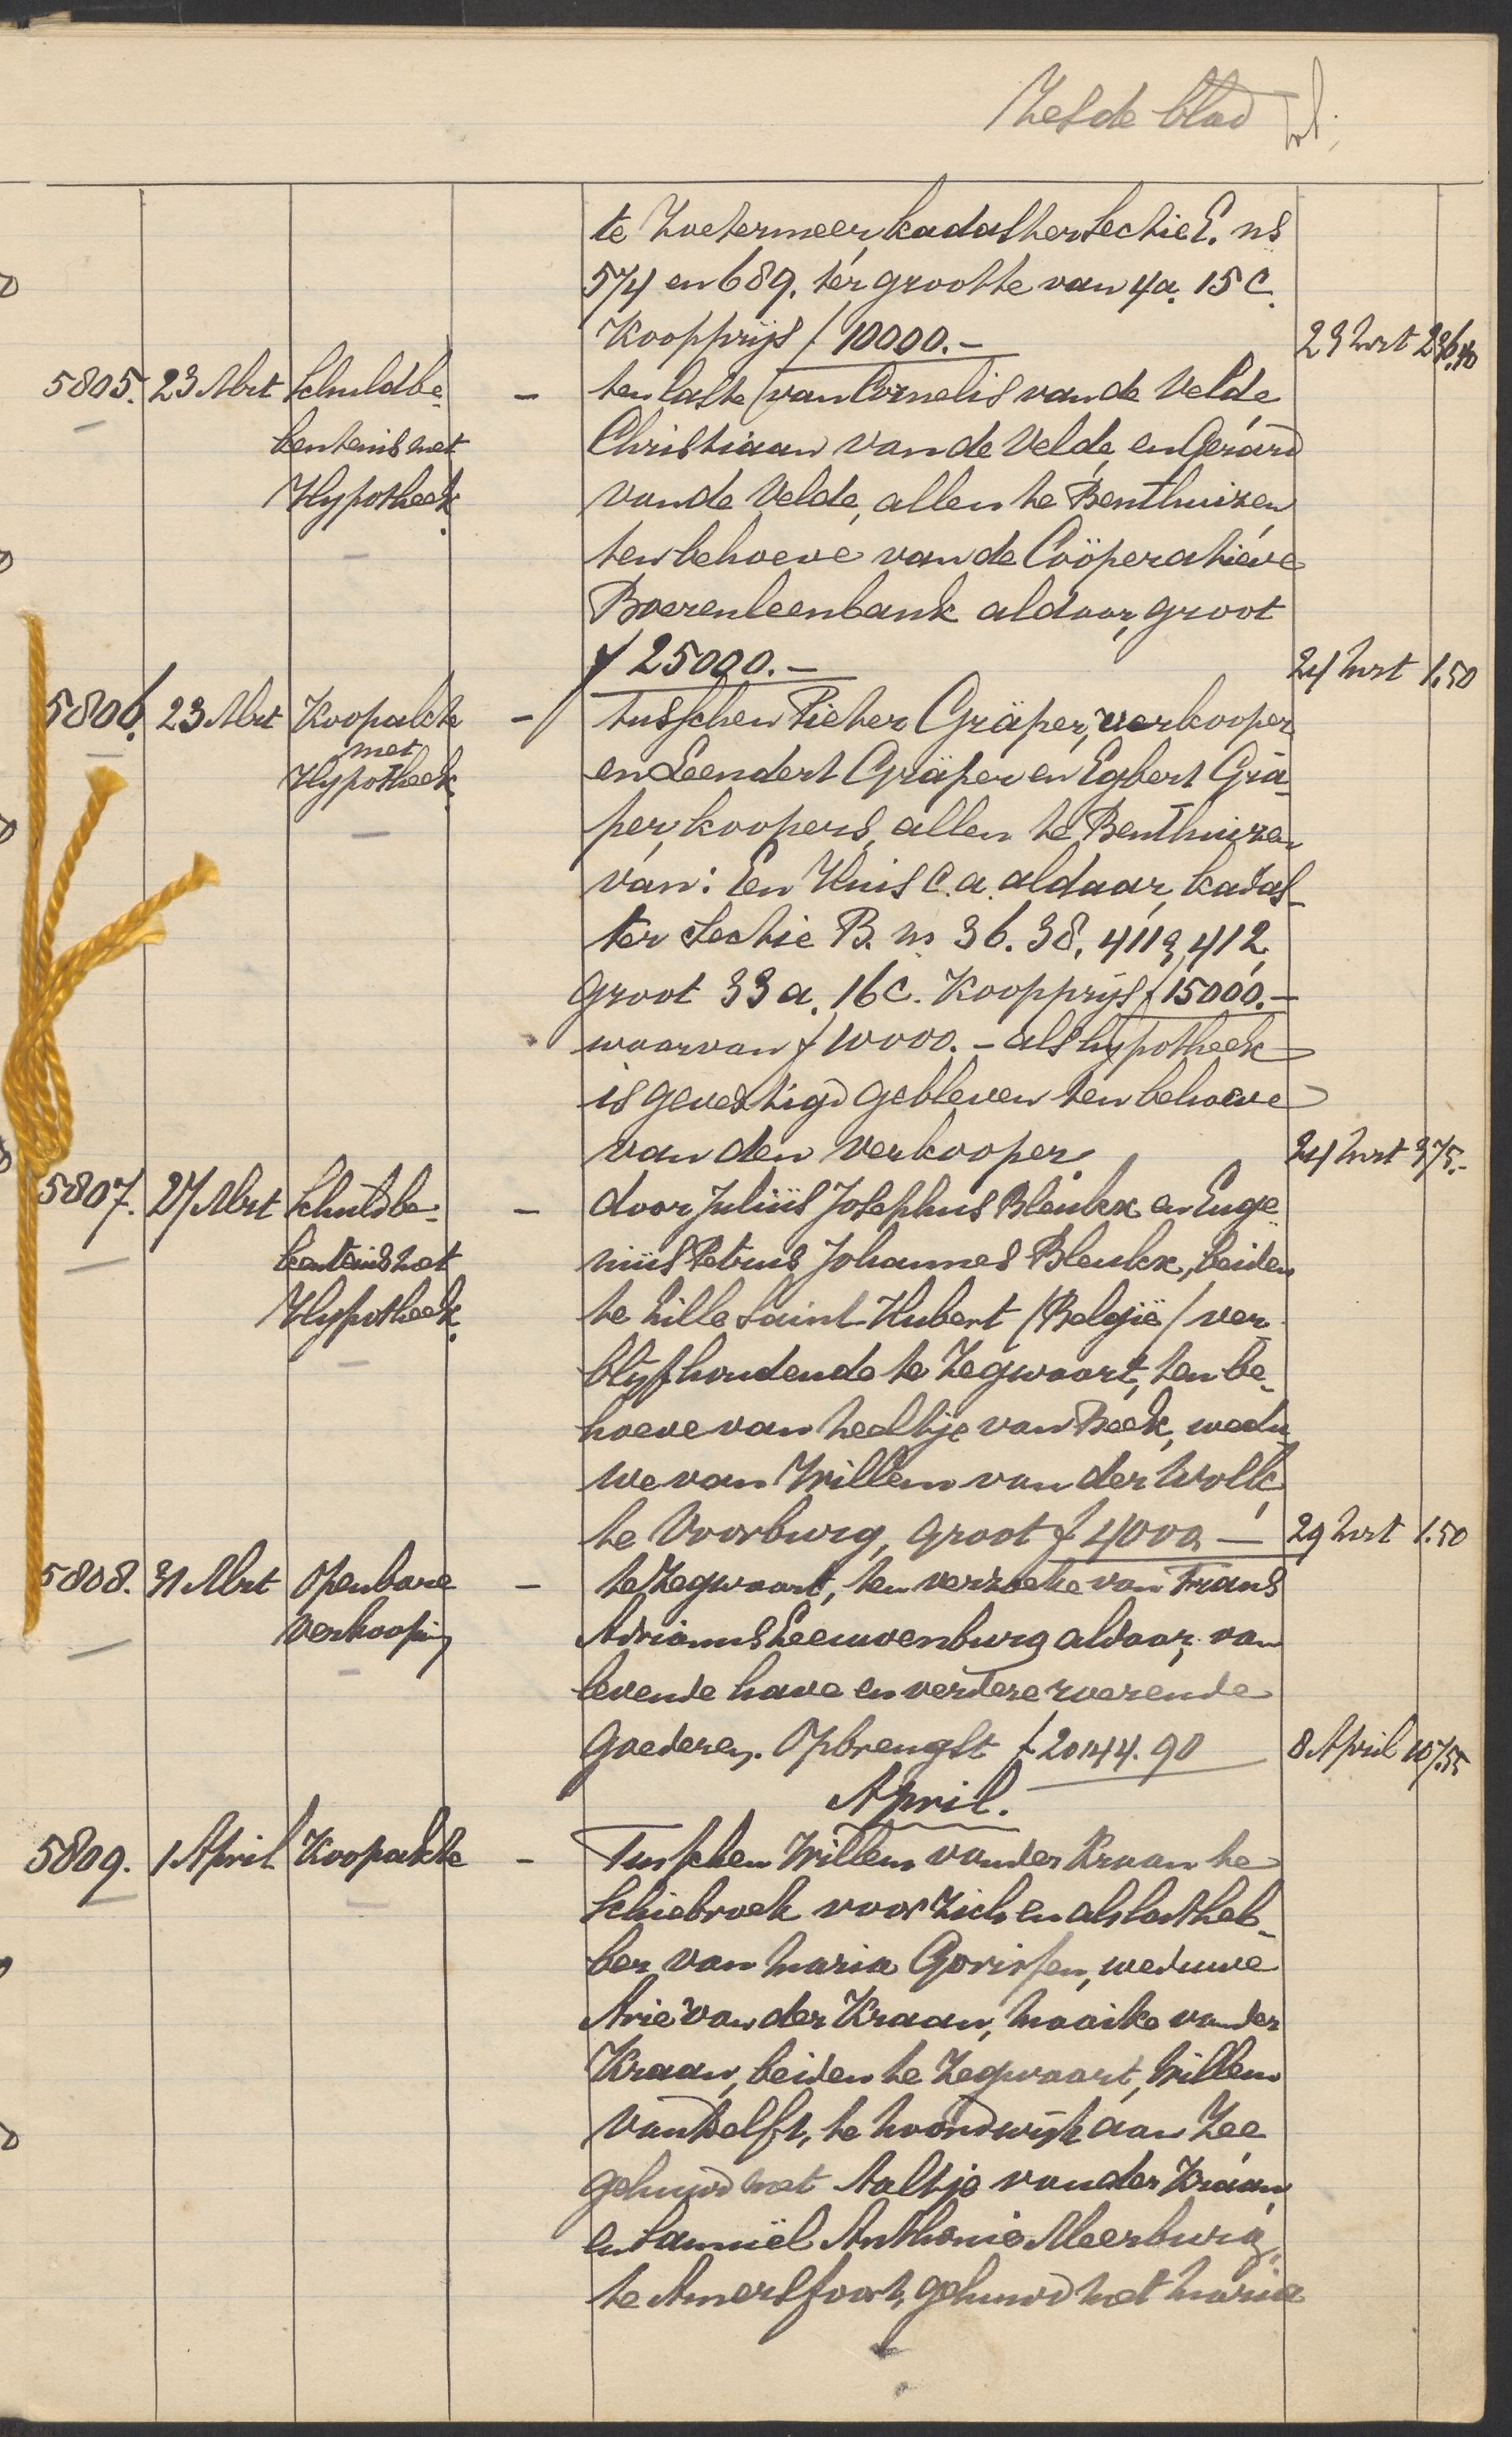 Zesde blad
te Zoetermeer, kadaster Sectie E. ns
574 en 689. ter grootte van 4a. 15 c.
Koopprijs f 10000.- 23 Mrt
5805. 23 Mrt Schuldbe- - ten laste van Cornelis van de Velde,
kentenis met Christiaan van de Velde, en Gerard
Hypotheek. van de Velde, allen te Benthuizen,
ten behoeve van de Coöperatieve
Boerenleenbank aldaar, groot
f 25000.- 24 Mrt 1.50
5806. 23 Mrt Koopakte - tusschen Pieter Gräper, verkooper
met
Hypotheek. en Leendert Gräper en Egbert Grä-
per, koopers, allen te Benthuizen
van: Een Huis c.a. aldaar, kadas-
ter Sectie B. ns 36. 38. 411 & 412,
groot 33 a. 16 c. Koopprijs f 15000.-
waarvan f 10000.- als hypotheek
is gevestigd gebleven ten behoeve
van den verkooper. 24 Mrt 375.-
5807. 27 Mrt Schuldbe- - door Juliüs Josephus Bleukx en Euge-
kentenis met niüs Petrus Johannes Bleukx, beiden
Hypotheek. te Lille Saint-Hubert (België) ver-
blijfhoudende te Zegwaart, ten be-
hoeve van Neeltje van Beek, wedu-
we van Willem van der Wolk,
te Voorburg, groot f 4000.- 29 Mrt 1.50
5808. 31 Mrt Openbare - te Zegwaart, ten verzoeke van Frans
Verkooping Adrianus Leeuwenburg aldaar, van
levende have en verdere roerende
goederen. Opbrengst f 20144.90 8 April 107.55
April.
5809. 1 April Koopakte - Tusschen Willem van der Kraan te
Schiebroek voor zich en als lastheb-
ber van Maria Gorissen, weduwe
Arie van der Kraan, Maaike van der
Kraan, beiden te Zegwaart, Willem
van Delft, te Noordwijk aan Zee
gehuwd met Aaltje van der Kraan,
en Samuël Anthonie Meerburg,
te Amersfoort, gehuwd met Maria